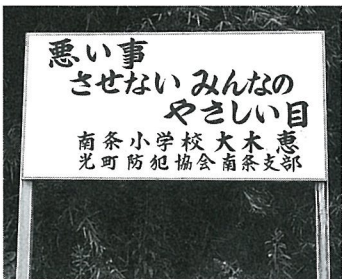 悪い事
させない みんなの
やさしい目
南条小学校 大木 恵
光町防犯協会南条支部